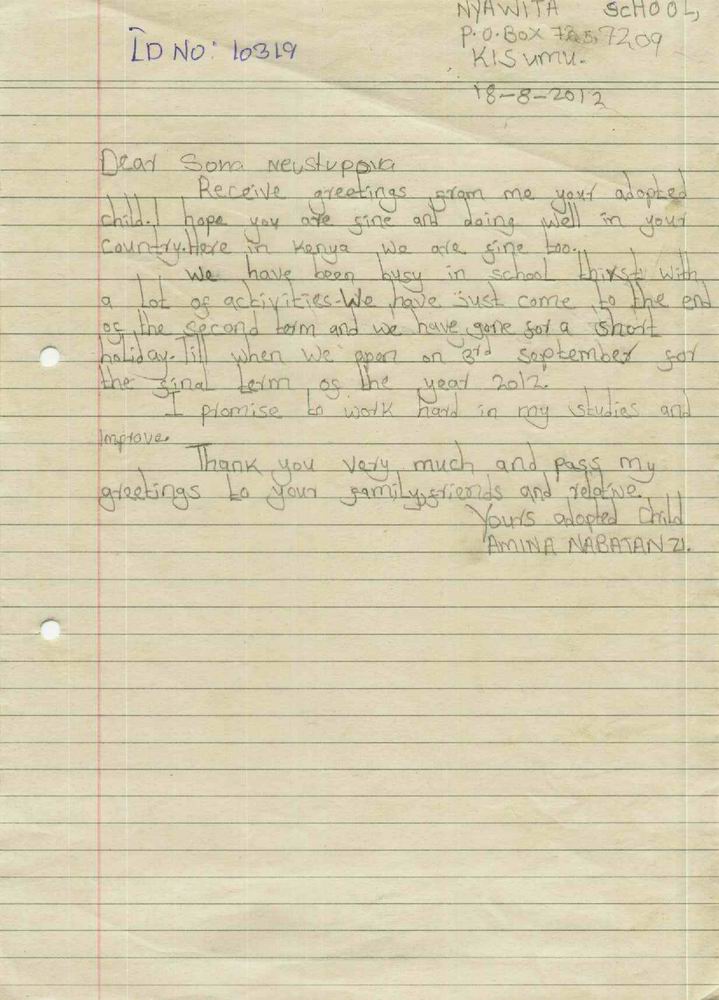 NYAWITA SCHOOL,
ID NO: 10319
P.O.BOX 7209
KISUMU.
18-8-2012
Dear Sona Neustuppova
Receive greetings from me your adopted
child. I hope you are fine and doing well in your
Country. Here in Kenya we are fine too.
We have been busy in school thirst with
a lot of activities. We have just come to the end
of the second term and we have gone for a short
holiday. Till when we open on 3rd september for
the final term of the year 2012.
I promise to work hard in my studies and
improve.
Thank you very much and pass my
greetings to your family, friends and relative.
Yours adopted Child
AMINA NABATANZI.